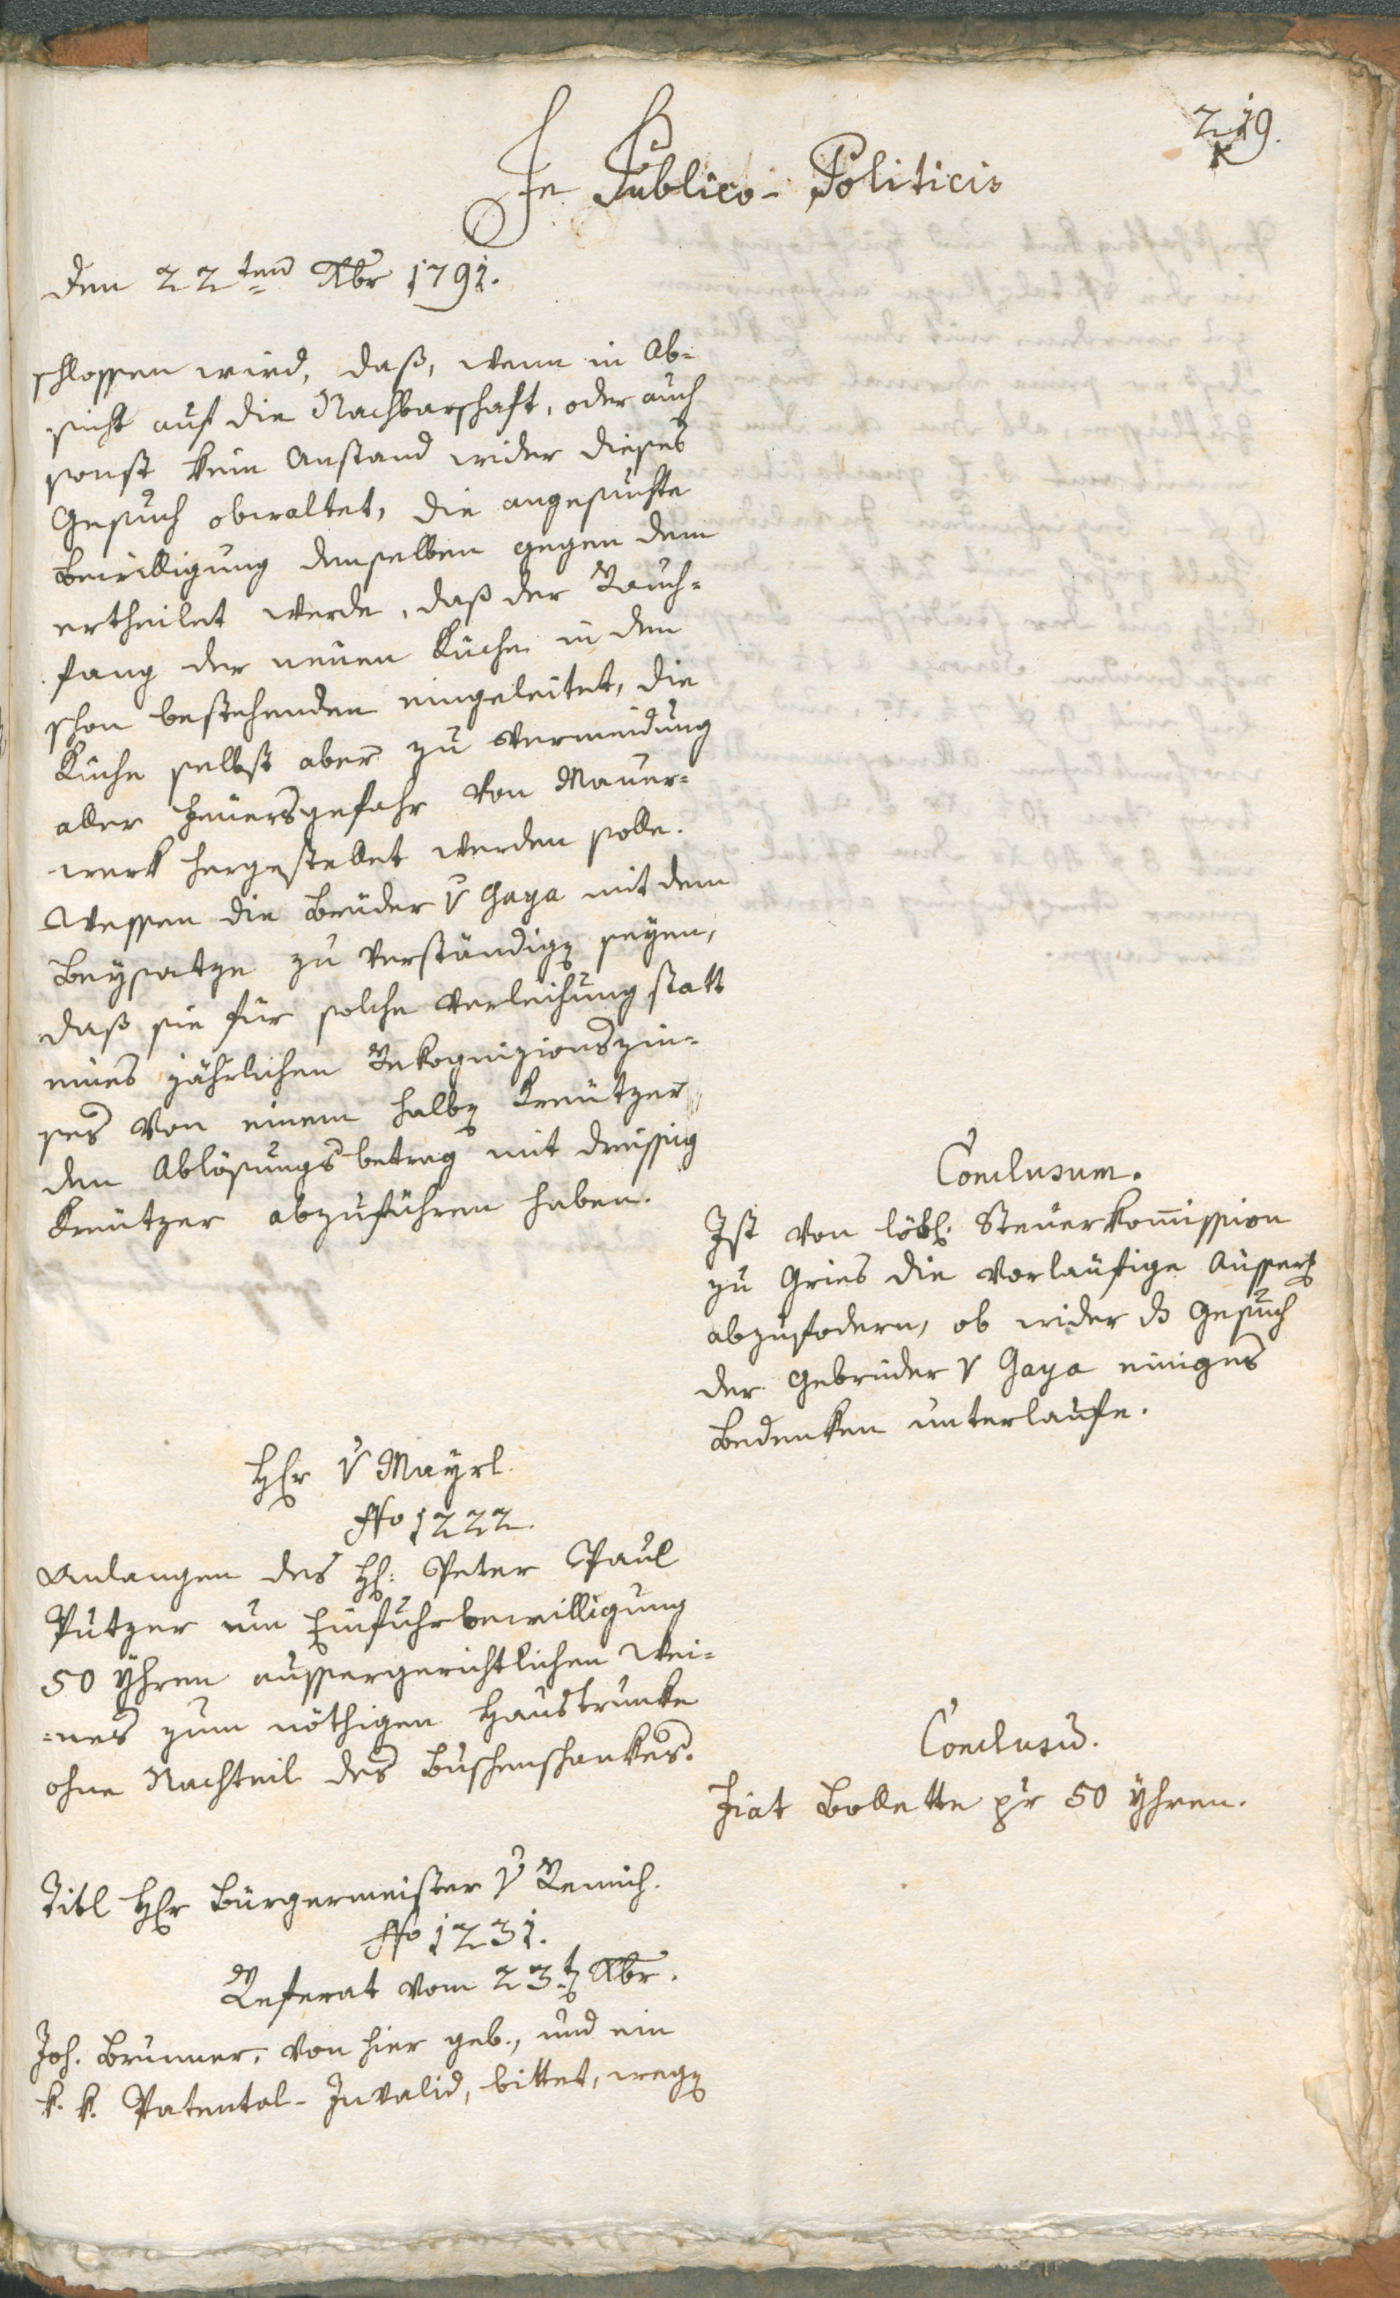 219.
In Publico-Politicis
Den 22ten Xbr 1791.
schlossen wird, daß, wenn in Ab-
sicht auf die Nachbarschaft, oder auch
sonst kein Anstand wider dieses
Gesuch obwaltet, die angesuchte
Bewilligung denselben gegen dem
ertheilet werde, daß der Rauch-
fang der neuen Küche in den
schon bestehenden eingeleitet, die
Küche selbst aber zu Vermeidung
aller Feuersgefahr von Mauer-
werk hergestellet werden solle.
Wessen die Brüder v Gaya mit dem
Beysatze zu verständigen seyen,
daß sie für solche Verleihung statt
eines jährlichen Rekognizionszin-
ses von einem halben Kreutzer
den Ablösungsbetrag mit dreissig
Kreutzer abzuführen haben.
Conclusum.
Ist von löbl. Steuerkom̄ission
zu Gries die vorläufige Ausserg
abzufodern, ob wider ds Gesuch
der Gebrüder v Gaya einiges
Bedenken unterlaufe.
Hr v Mayrl.
No 1222.
Anlangen des H: Peter Paul
Putzer um Einfuhrbewilligung
50 Yhren aussergerichtlichen Wei-
=nes zum nöthigen Haustrunke
ohne Nachteil des Buschenschankes.
Conclusū.
Fiat Bollette pr 50 Yhren.
Titl Hr Bürgermeister v Remich.
No 1231.
Referat vom 23t Xbr.
Joh. Brunner, von hier geb., und ein
k. k. Patental-Invalid, bittet, wegen